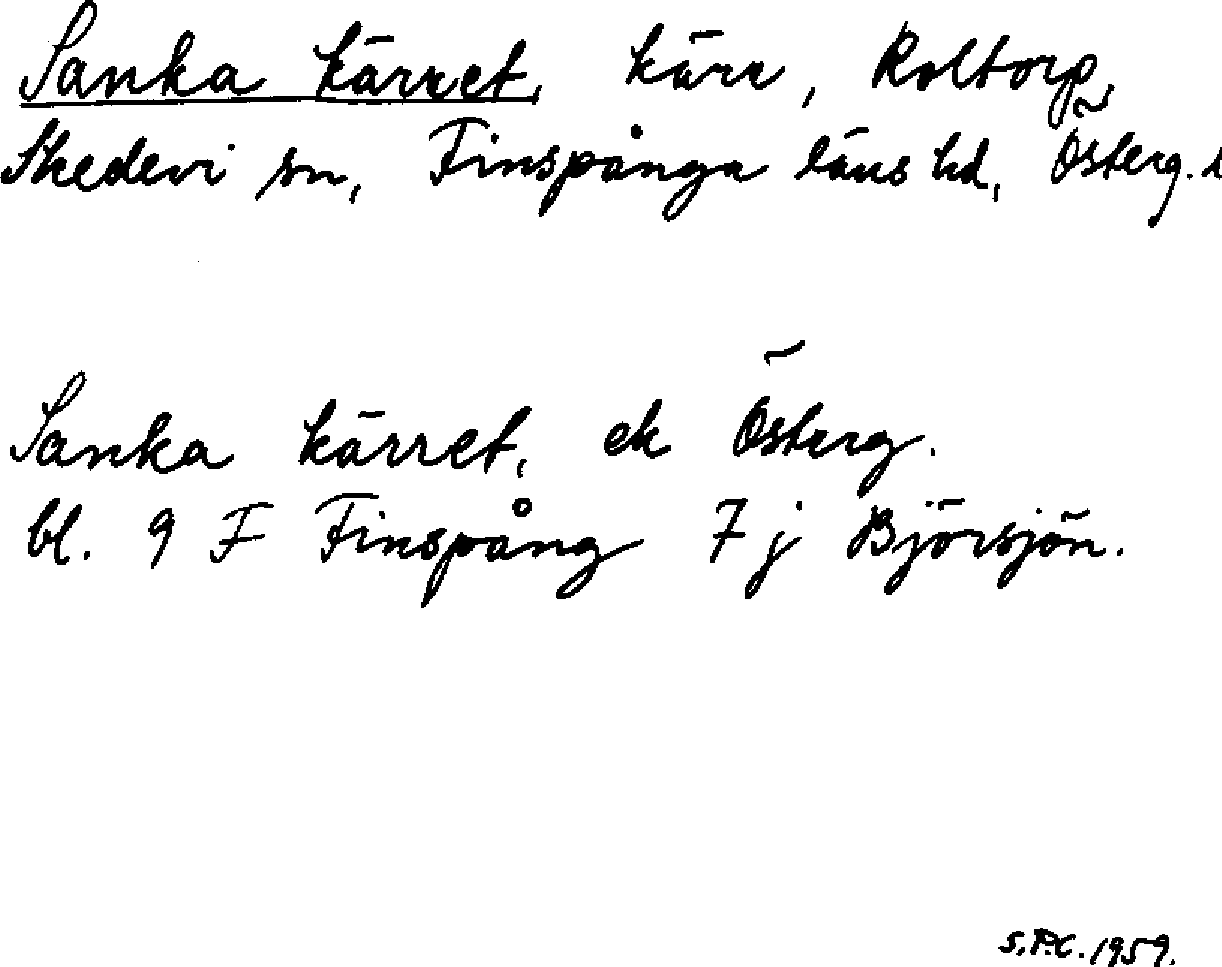 Sanka kärret, kärr, Roltorp,
Skedevi sn, Finspånga läns hd, Österg. l
Sanka kärret, ek Österg.
bl. 9 F Finspång 7 j Björsjön.
S.P.C. 1959.